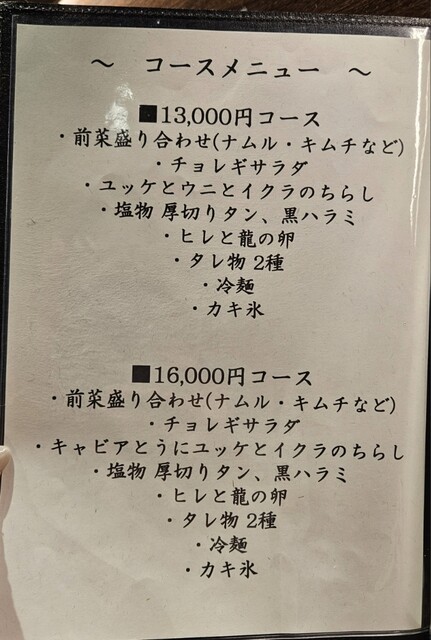 ～ コースメニュー ～
■13,000円コース
・前菜盛り合わせ(ナムル・キムチなど)
・チョレギサラダ
・ユッケとウニとイクラのちらし
・塩物 厚切りタン、黒ハラミ
・ヒレと龍の卵
・タレ物 2種
・冷麺
・カキ氷
■16,000円コース
・前菜盛り合わせ(ナムル・キムチなど)
・チョレギサラダ
・キャビアとうにユッケとイクラのちらし
・塩物 厚切りタン、黒ハラミ
・ヒレと龍の卵
・タレ物 2種
・冷麺
・カキ氷